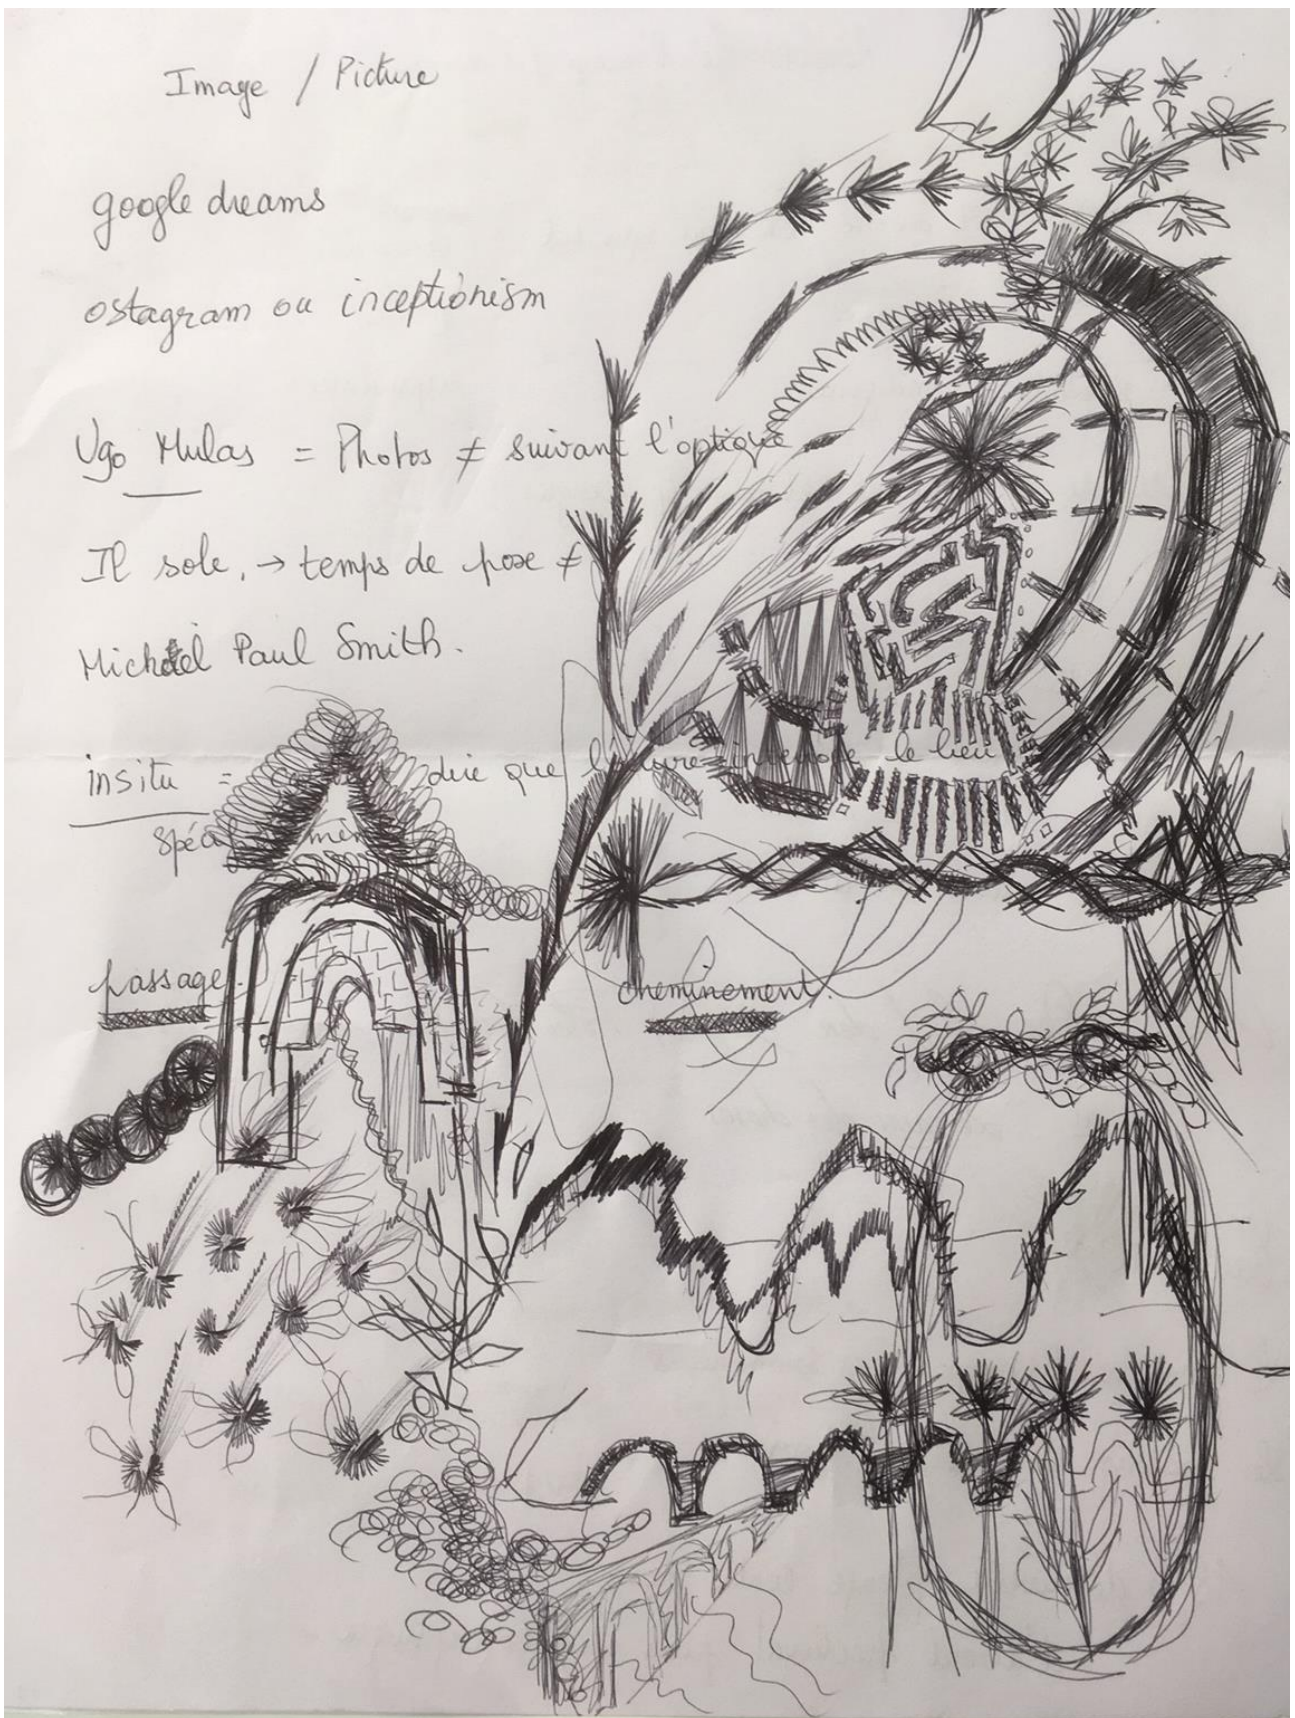 Image / Picture
google dreams
ostagram ou inceptionism
Ugo Mulas = Photos ≠ suivant l'optique
Il sole, → temps de pose ≠
Michael Paul Smith.
insitu = dire que l'œuvre interroge le lieu
passage. cheminement.